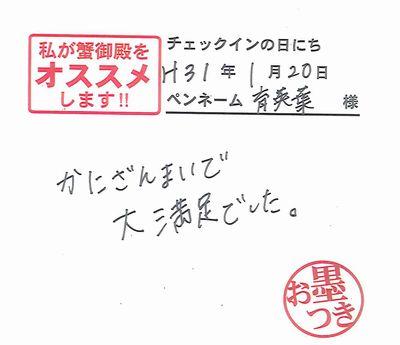 私が蟹御殿を
オススメ
します!!
チェックインの日にち
H31年1月20日
ペンネーム 育英葉 様
かにざんまいで
大満足でした。
お墨つき